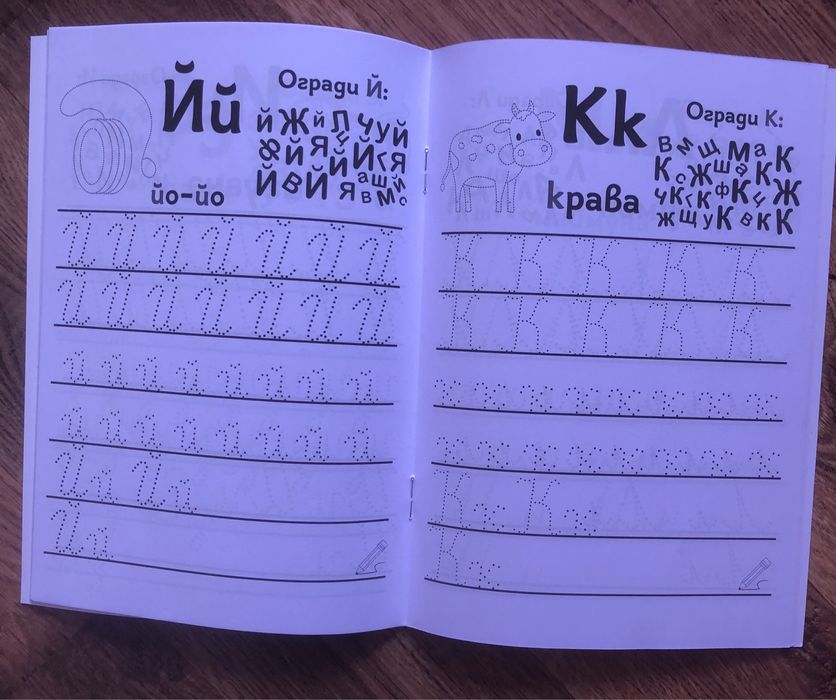 Йй
Огради Й:
й Ж й Л Ч У Й
Ф Й Я Ц Й И Я
Й В Й Я в а Ш М й с
йо-йо
Й Й Й Й Й Й Й
Й Й Й Й Й Й Й
й й й й й й й й
й й й й й й й й
Йй Йй
Йй
Кк
Огради К:
В М Щ М а К
К с Ж Ш а К К
ч К г К ф К ц Ж
ж Щ у К в К К
крава
К К К К К
К К К К К
к к к к к к к к
к к к к к к к к
Кк Кк
Кк